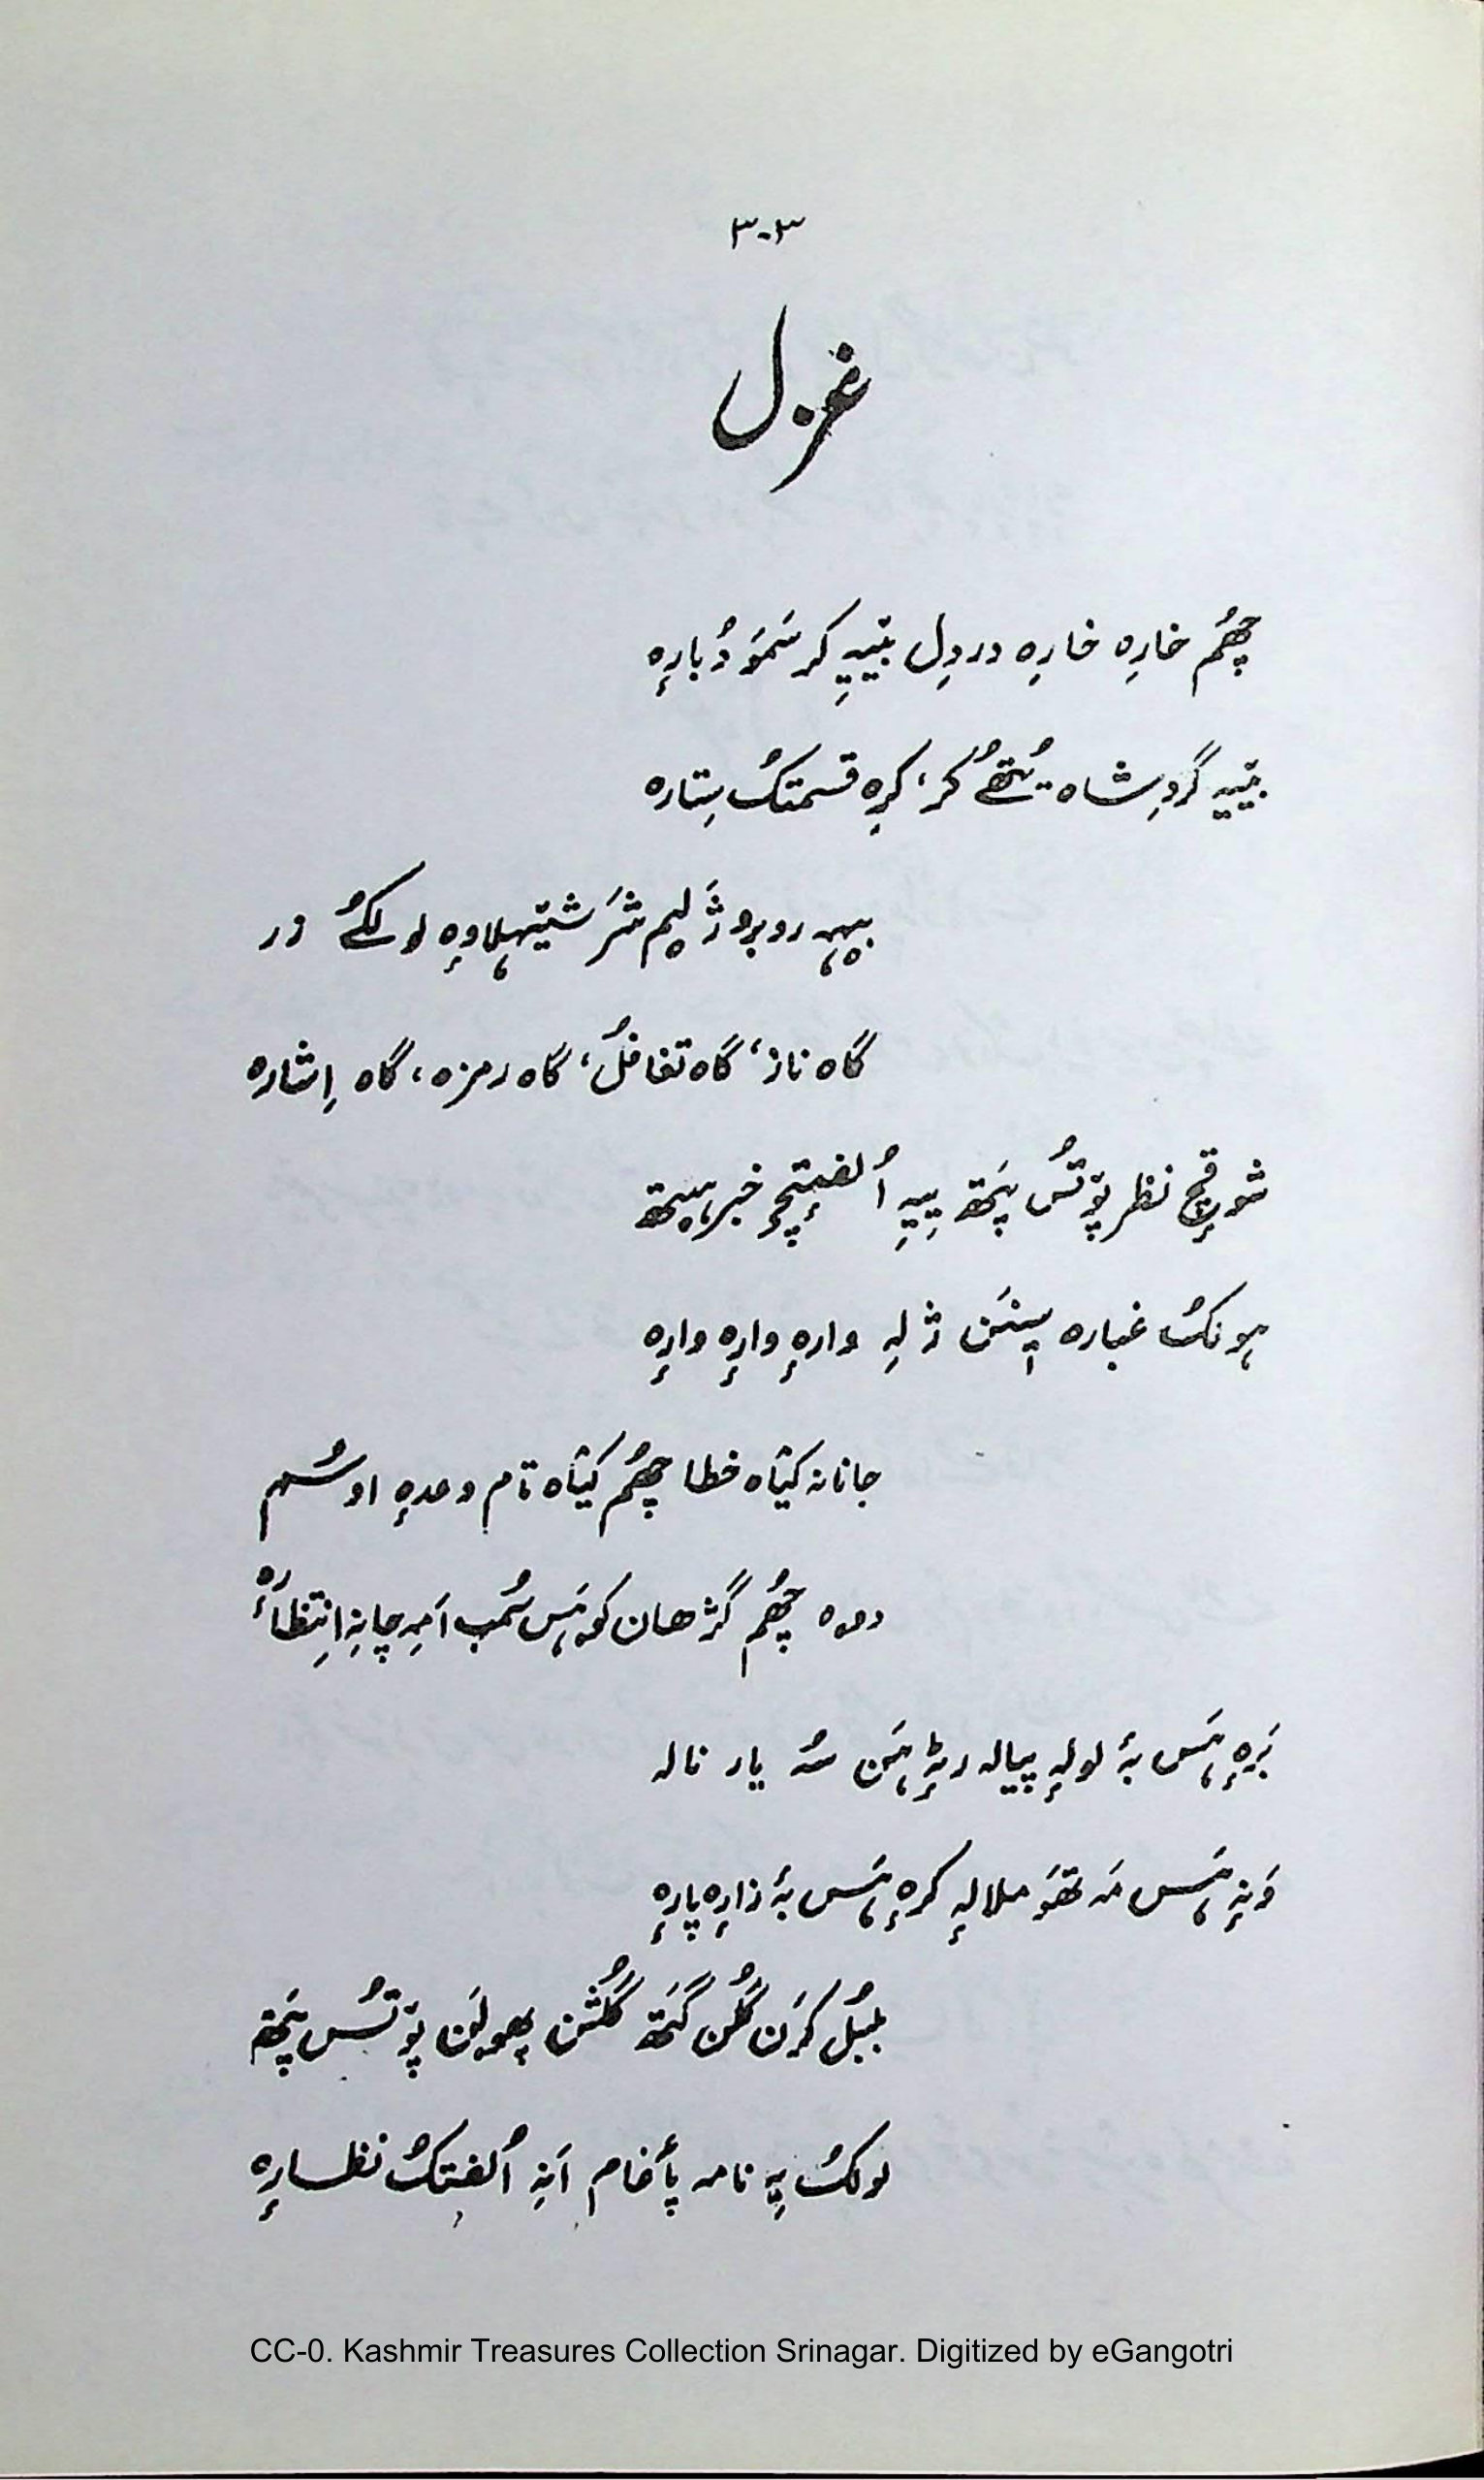 ۳۰۳
غزل
چھُم خارِہ خارِہ دردِل بیٚیہِ کر سَمَو دُبارٕہ
بیٚیہِ گردِشاہ یُتھُے کُر، کرِہ قسمتکُ سِتارہ
بہہ روبرو ژَلہِم شَر لولکُے در
گاہ ناز، گاہ تغافلُ، گاہ رمزہ، گاہ اِشارہ
شوقٕچ نظر پوٚتُس پَتھ ییِہِ اُلفتٕچ خبر ہیتھ
ہونکُ غبارہ سپنَن ژلہِ وارٕہ وارٕہ وارٕہ
جانانہ کیٚاہ خطا چھُم کیٚاہ تام وعدہٕ اوسُہم
دوہ چھُم گژھان کوہَس سُمب اَمہِ چانہِ اِنتظارُٕہ
بَرٕہ ہَس بہٕ لولہٕ پیالہ رٹہٕ ہَن سُہ یار نالہ
وَنہٕ ہَس مَہ تھَو ملالہٕ کرٕہ ہَس بہٕ زارٕہ پارٕہ
بلبُل کرَن گُلن گَتھ گُلشن پھولَن پوٚتُس پَتھ
لولکُ یہِ نامہ پأغام اَنہِ اُلفتکُ نظارٕہ
CC-0. Kashmir Treasures Collection Srinagar. Digitized by eGangotri